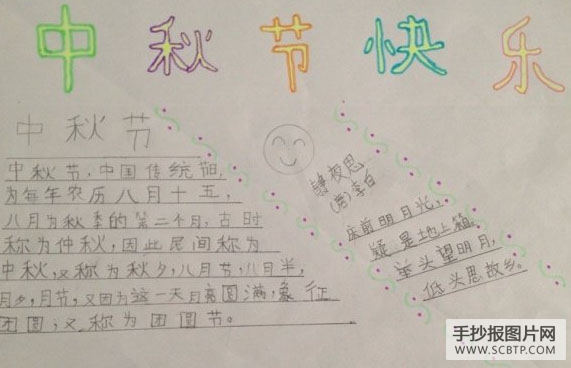 中秋节快乐
中秋节
中秋节,中国传统节日,
为每年农历八月十五,
八月为秋季的第二个月,古时
称为仲秋,因此民间称为
中秋,又称为秋夕,八月节,八月半,
月夕,月节,又因为这一天月亮圆满,象征
团圆,又称为团圆节。
静夜思
(唐)李白
床前明月光,
疑是地上霜。
举头望明月,
低头思故乡。
手抄报图片网
WWW.SCBTP.COM